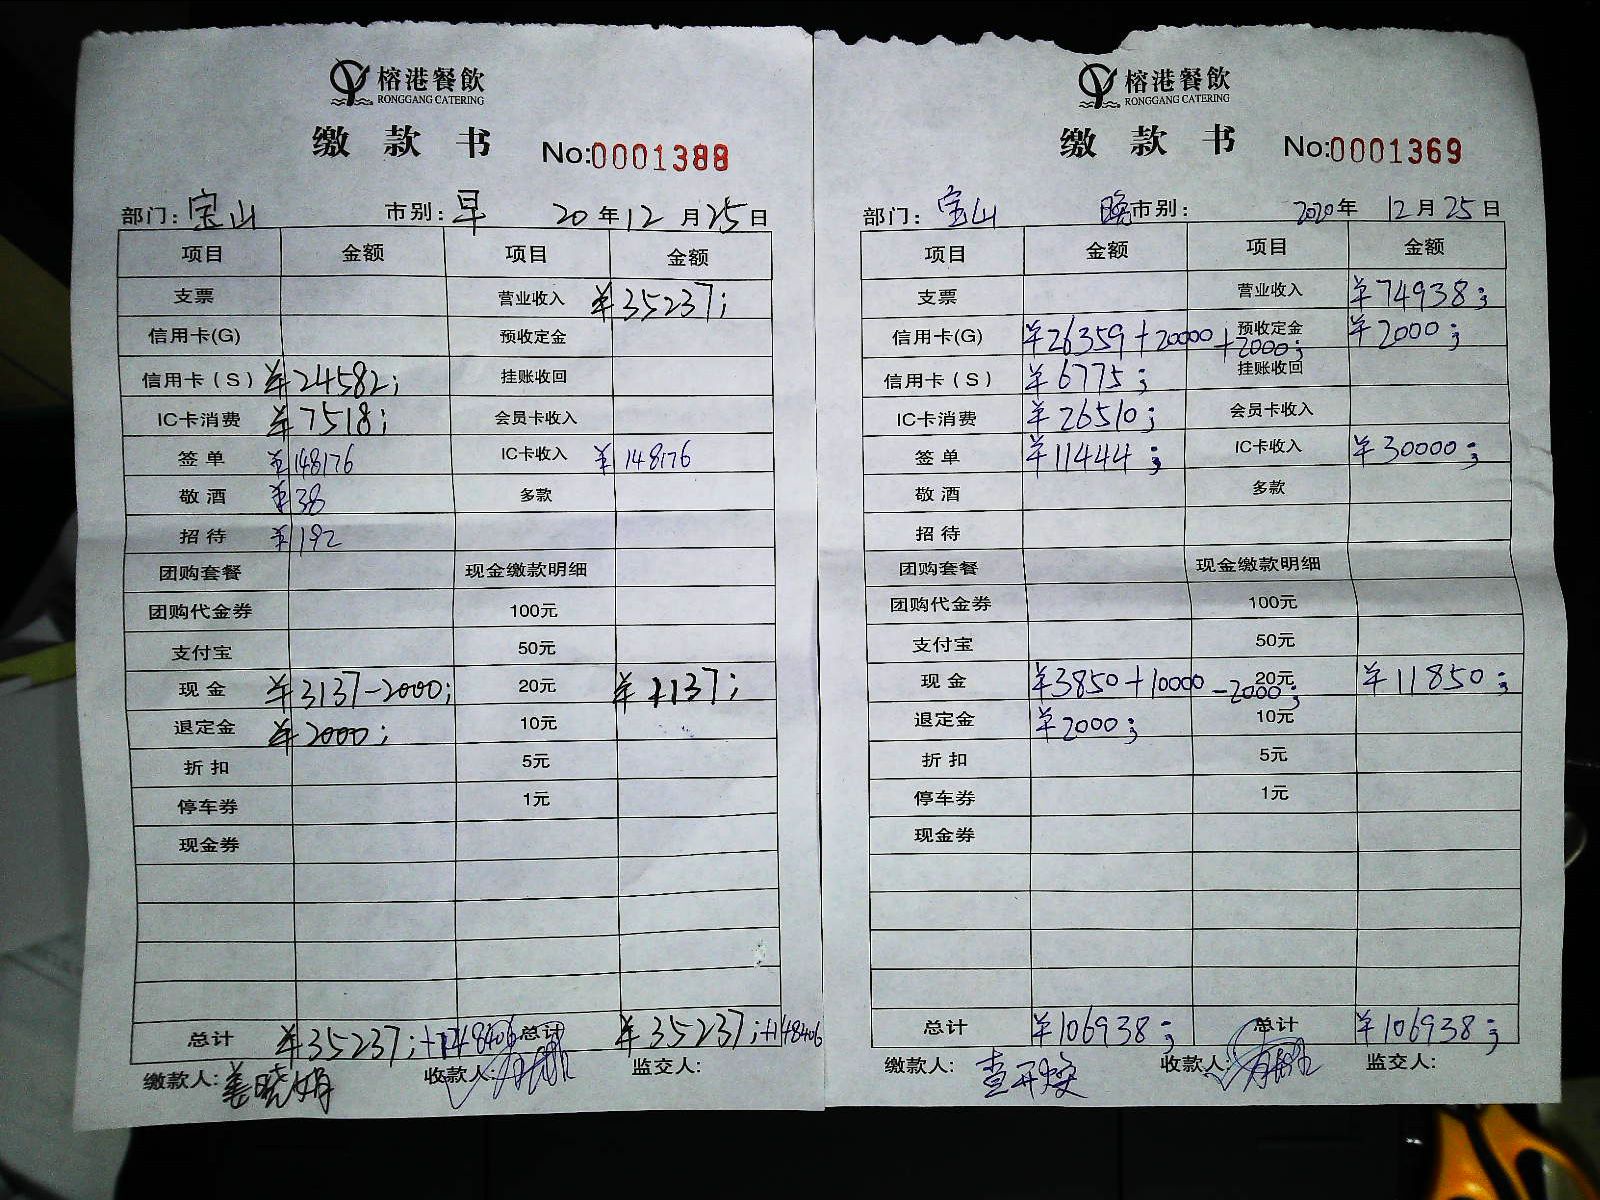 榕港餐飲
RONGGANG CATERING
缴款书 No:0001388
部门:宝山 市别:早 20年12月25日
项目 金额 项目 金额
支票 营业收入 ¥35237;
信用卡(G) 预收定金
信用卡(S) ¥24582; 挂账收回
IC卡消费 ¥7518; 会员卡收入
签单 ¥148176 IC卡收入 ¥148176
敬酒 ¥38 多款
招待 ¥192
团购套餐 现金缴款明细
团购代金券 100元
支付宝 50元
现金 ¥3137-2000; 20元 ¥1137;
退定金 ¥2000; 10元
折扣 5元
停车券 1元
现金券
总计 ¥35237;+148406 总计 ¥35237;+148406
缴款人:姜晓娟 收款人: 监交人:
榕港餐飲
RONGGANG CATERING
缴款书 No:0001369
部门:宝山 晚市别: 2020年12月25日
项目 金额 项目 金额
支票 营业收入 ¥74938;
信用卡(G) ¥26359+20000+2000; 预收定金 ¥2000;
信用卡(S) ¥6775; 挂账收回
IC卡消费 ¥26510; 会员卡收入
签单 ¥11444; IC卡收入 ¥30000;
敬酒 多款
招待
团购套餐 现金缴款明细
团购代金券 100元
支付宝 50元
现金 ¥3850+10000-2000; 20元 ¥11850;
退定金 ¥2000; 10元
折扣 5元
停车券 1元
现金券
总计 ¥106938; 总计 ¥106938;
缴款人: 收款人: 监交人: